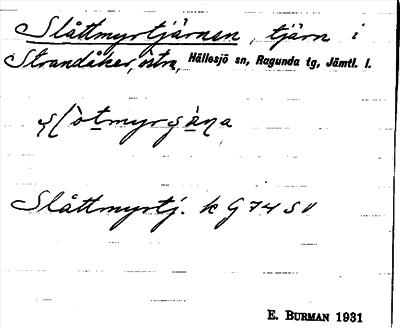 Slåttmyrtjärnen, tjärn i
Strandåker, östra, Hällesjö sn, Ragunda tg, Jämtl. l.
Slåttmyrtj. k G 74 SV
E. BURMAN 1931